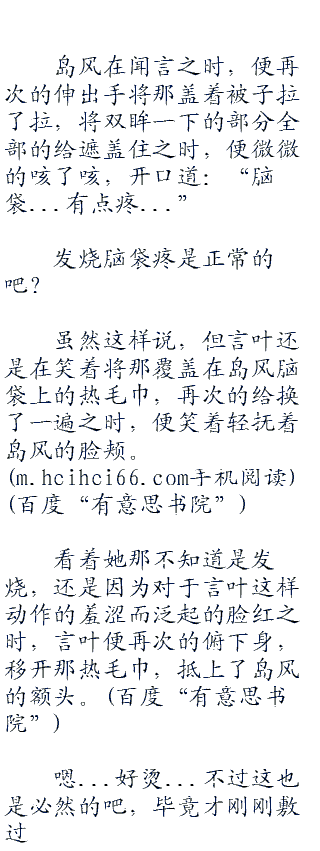 岛风在闻言之时，便再
次的伸出手将那盖着被子拉
了拉，将双眸一下的部分全
部的给遮盖住之时，便微微
的咳了咳，开口道：“脑
袋...有点疼...”
发烧脑袋疼是正常的
吧？
虽然这样说，但言叶还
是在笑着将那覆盖在岛风脑
袋上的热毛巾，再次的给换
了一遍之时，便笑着轻抚着
岛风的脸颊。
(m.hcihci66.com手机阅读)
(百度“有意思书院”)
看着她那不知道是发
烧，还是因为对于言叶这样
动作的羞涩而泛起的脸红之
时，言叶便再次的俯下身，
移开那热毛巾，抵上了岛风
的额头。(百度“有意思书
院”)
嗯...好烫...不过这也
是必然的吧，毕竟才刚刚敷
过